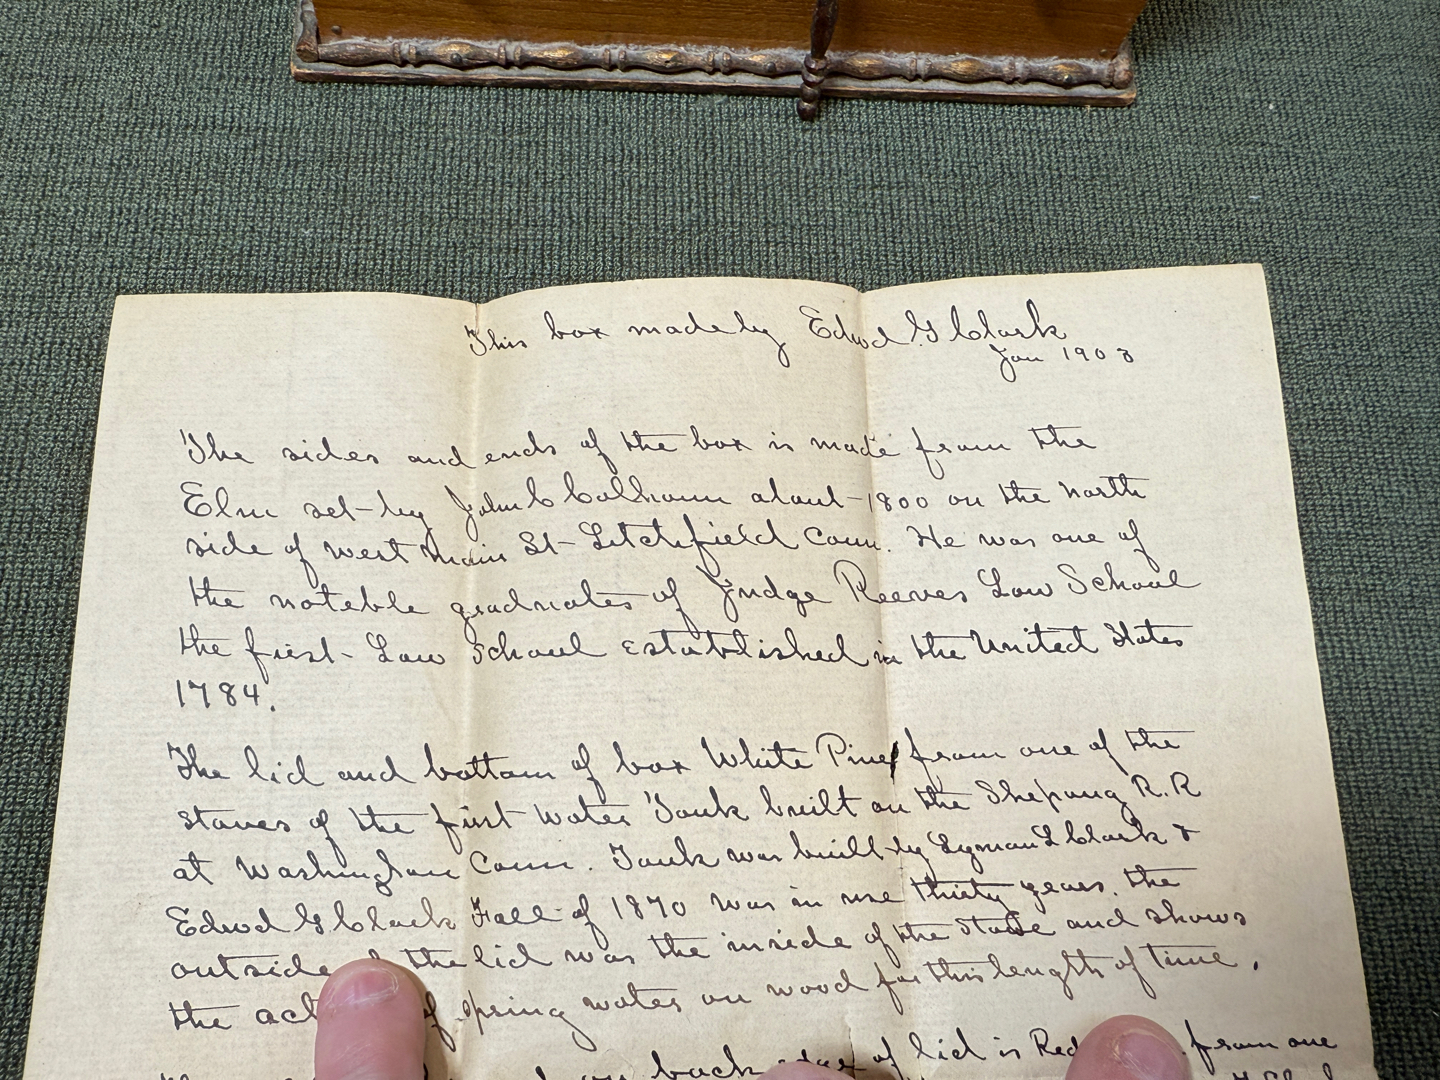 This box made by Edwd G Clark
Jan 1903
The sides and ends of the box is made from the
Elm set by John C Calhoun about 1800 on the north
side of west main St Litchfield Conn. He was one of
the noteble graduates of Judge Reeves Law School
the first Law School established in the United States
1784.
The lid and bottom of box White Pine from one of the
staves of the first Water Tank built on the Shepaug R.R
at Washington Conn. Tank was built by Lyman L Clark &
Edwd G Clark Fall of 1870 was in use thirty years. the
outside of the lid was the inside of the stave and shows
the of spring water on wood for this length of time.
on back edge of lid is Red from one